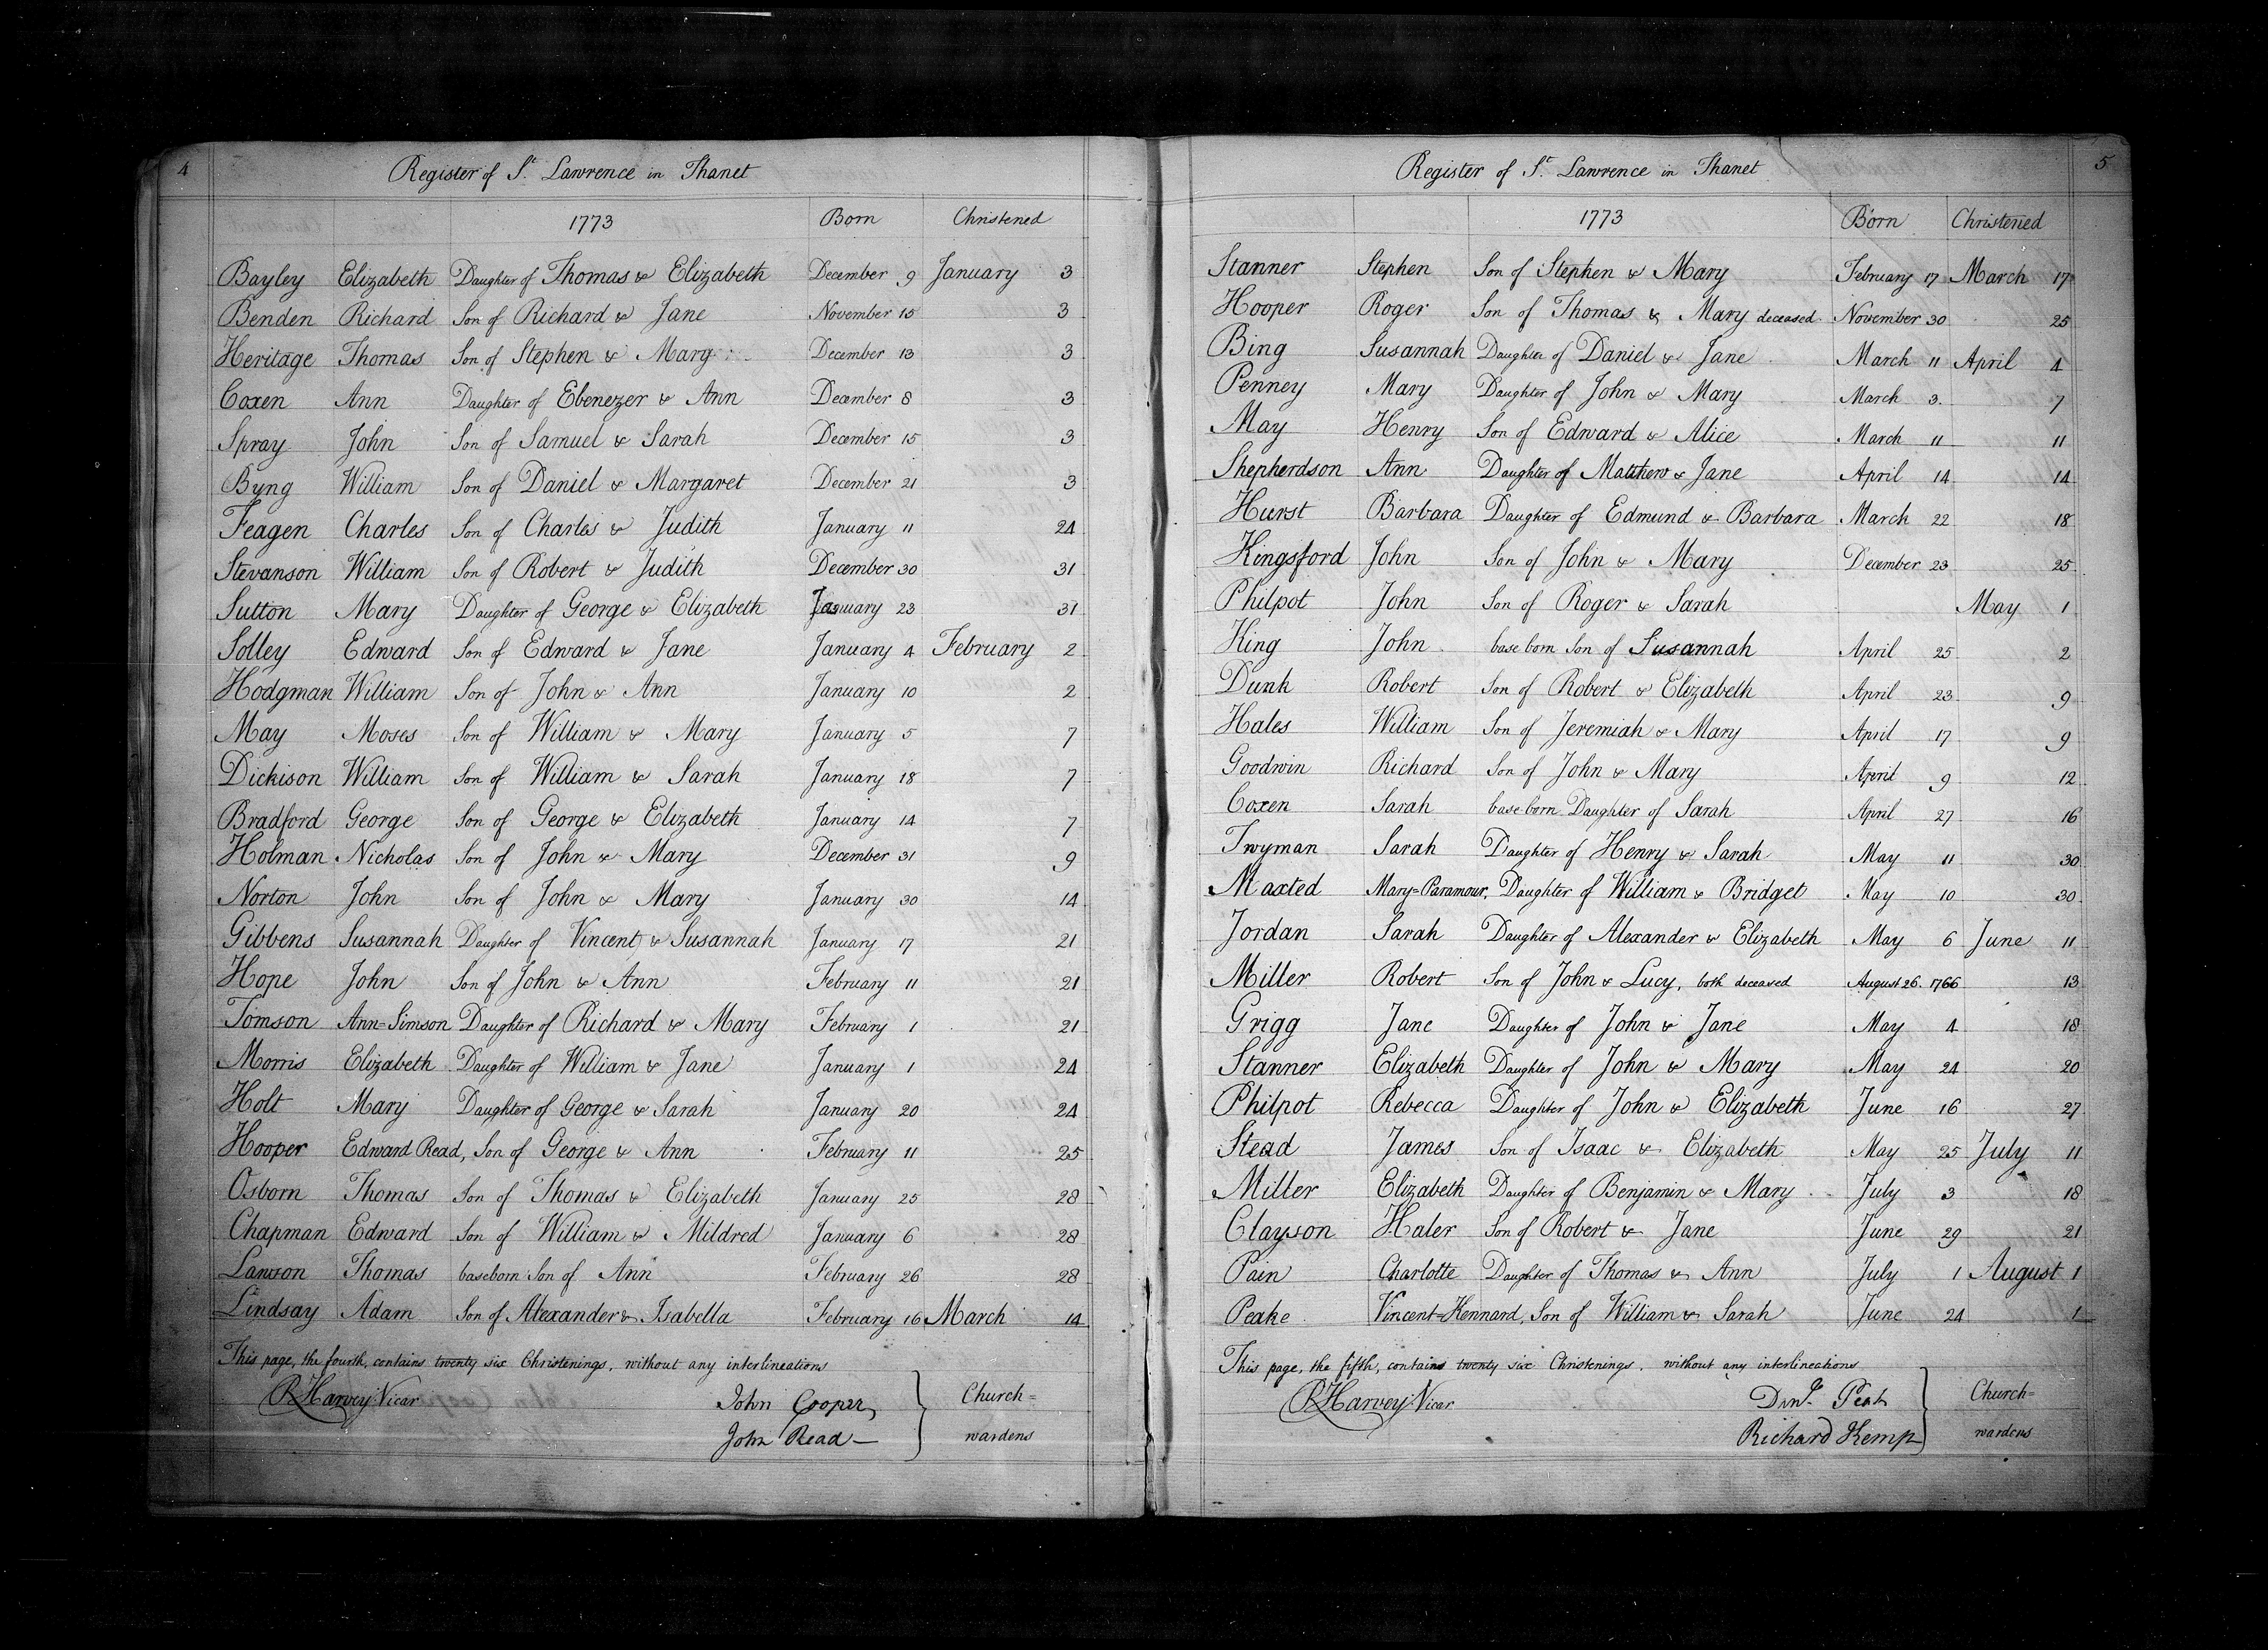 4
Register of St. Lawrence in Thanet
1773 Born Christened
Bayley Elizabeth Daughter of Thomas & Elizabeth December 9 January 3
Benden Richard Son of Richard & Jane November 15 3
Heritage Thomas Son of Stephen & Mary December 13 3
Coxen Ann Daughter of Ebenezer & Ann December 8 3
Spray John Son of Samuel & Sarah December 15 3
Byng William Son of Daniel & Margaret December 21 3
Feagen Charles Son of Charles & Judith January 11 24
Stevanson William Son of Robert & Judith December 30 31
Sutton Mary Daughter of George & Elizabeth January 23 31
Solley Edward Son of Edward & Jane January 4 February 2
Hodgman William Son of John & Ann January 10 2
May Moses Son of William & Mary January 5 7
Dickison William Son of William & Sarah January 18 7
Bradford George Son of George & Elizabeth January 14 7
Holman Nicholas Son of John & Mary December 31 9
Norton John Son of John & Mary January 30 14
Gibbens Susannah Daughter of Vincent & Susannah January 17 21
Hope John Son of John & Ann February 11 21
Tomson Ann=Simson Daughter of Richard & Mary February 1 21
Morris Elizabeth Daughter of William & Jane January 1 24
Holt Mary Daughter of George & Sarah January 20 24
Hooper Edward Read, Son of George & Ann February 11 25
Osborn Thomas Son of Thomas & Elizabeth January 25 28
Chapman Edward Son of William & Mildred January 6 28
Lawson Thomas baseborn Son of Ann February 26 28
Lindsay Adam Son of Alexander & Isabella February 16 March 14
This page, the fourth, contains twenty six Christenings, without any interlineations
R Harvey Vicar John Cooper Church=
John Read wardens
5
Register of St. Lawrence in Thanet
1773 Born Christened
Stanner Stephen Son of Stephen & Mary February 17 March 17
Hooper Roger Son of Thomas & Mary deceased November 30 25
Bing Susannah Daughter of Daniel & Jane March 11 April 4
Penney Mary Daughter of John & Mary March 3 7
May Henry Son of Edward & Alice March 11 11
Shepherdson Ann Daughter of Matthew & Jane April 14 14
Hurst Barbara Daughter of Edmund & Barbara March 22 18
Kingsford John Son of John & Mary December 23 25
Philpot John Son of Roger & Sarah May 1
King John base born Son of Susannah April 25 2
Dunk Robert Son of Robert & Elizabeth April 23 9
Hales William Son of Jeremiah & Mary April 17 9
Goodwin Richard Son of John & Mary April 9 12
Coxen Sarah base born Daughter of Sarah April 27 16
Twyman Sarah Daughter of Henry & Sarah May 11 30
Maxted Mary=Paramour, Daughter of William & Bridget May 10 30
Jordan Sarah Daughter of Alexander & Elizabeth May 6 June 11
Miller Robert Son of John & Lucy, both deceased August 26. 1766 13
Grigg Jane Daughter of John & Jane May 4 18
Stanner Elizabeth Daughter of John & Mary May 24 20
Philpot Rebecca Daughter of John & Elizabeth June 16 27
Stead James Son of Isaac & Elizabeth May 25 July 11
Miller Elizabeth Daughter of Benjamin & Mary July 3 18
Clayson Haler Son of Robert & Jane June 29 21
Pain Charlotte Daughter of Thomas & Ann July 1 August 1
Peake Vincent=Kennard, Son of William & Sarah June 24 1
This page, the fifth, contains twenty six Christenings, without any interlineations
R Harvey Vicar Church=
Richard Kemp wardens